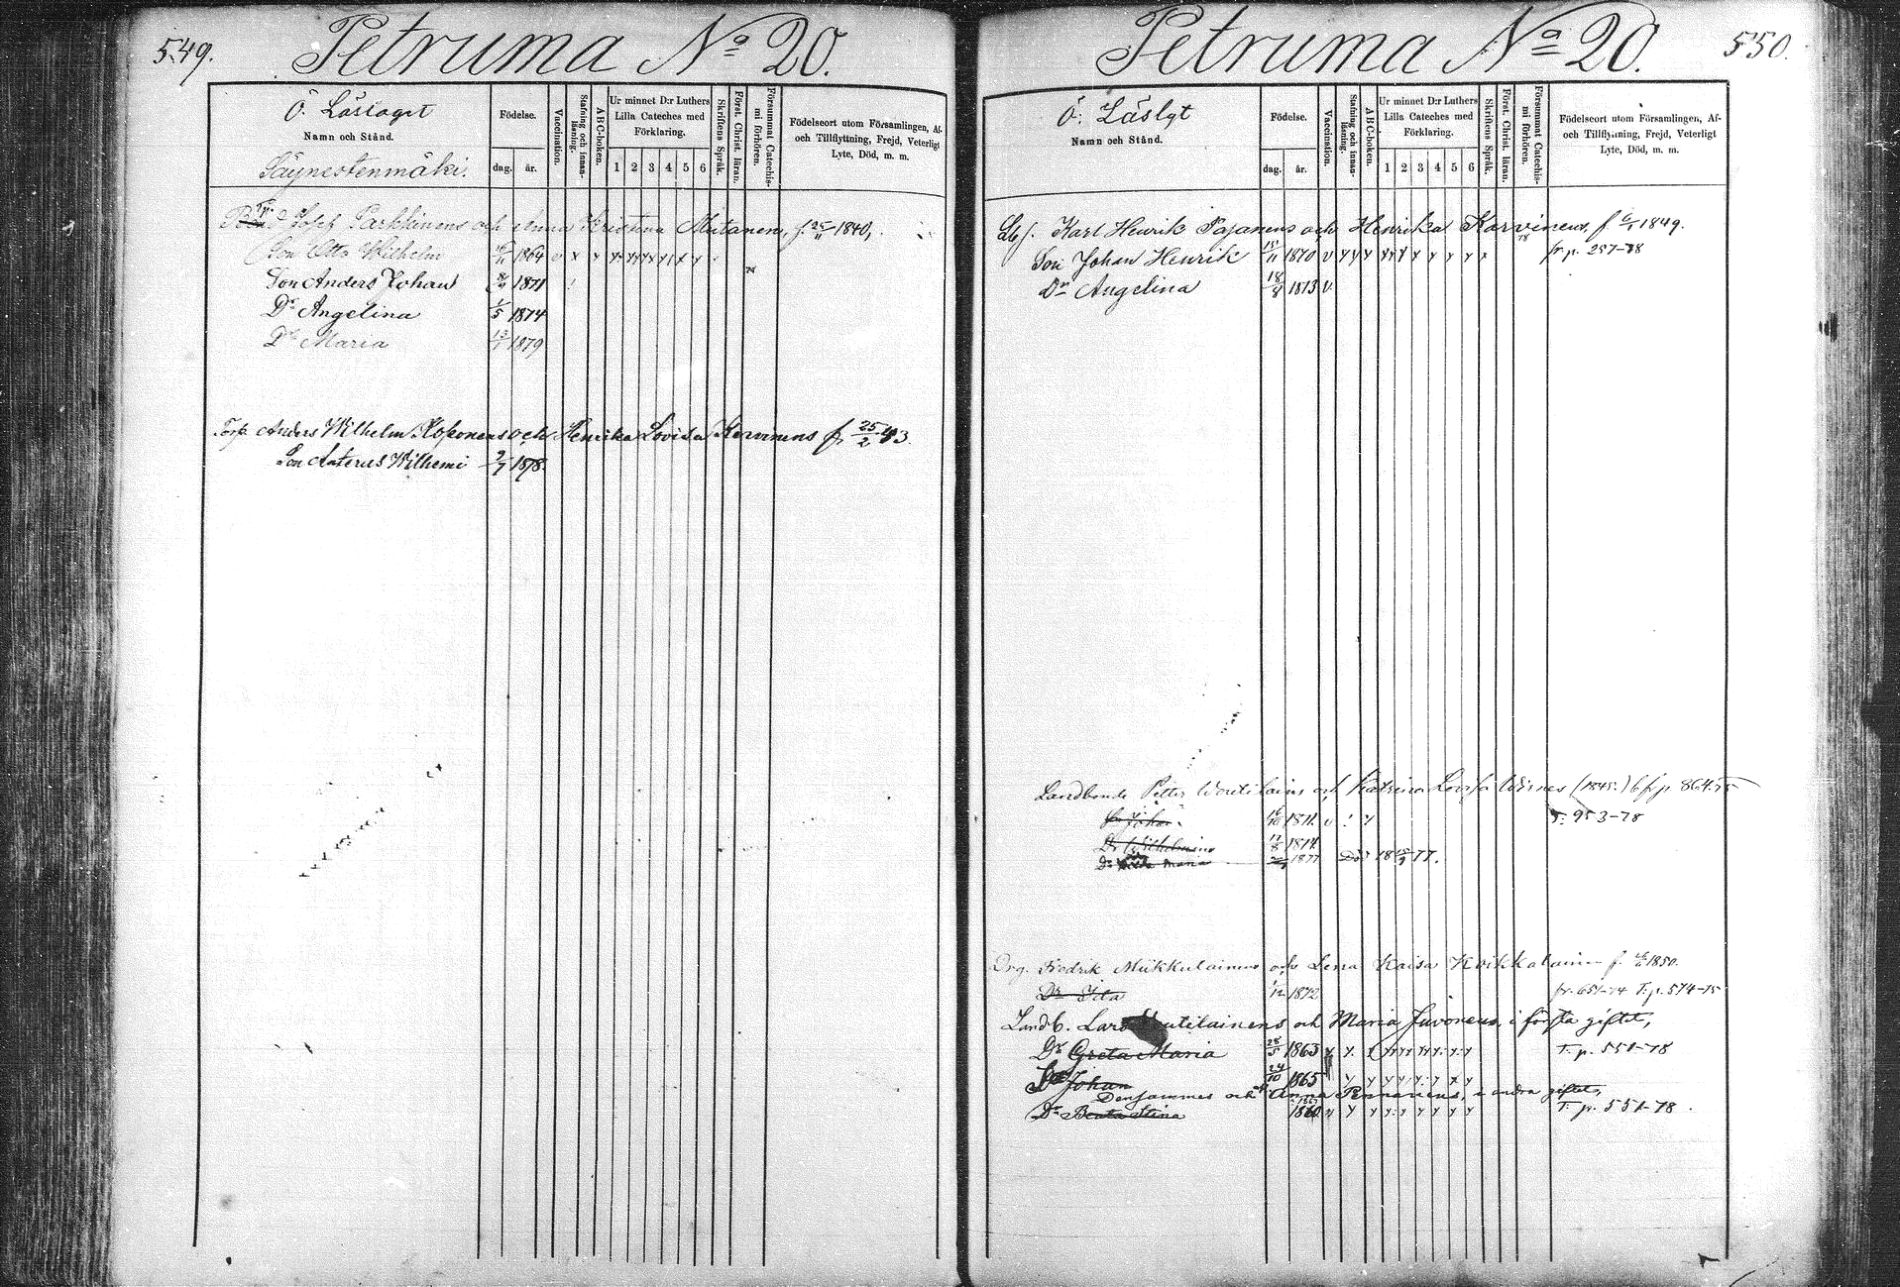 549.
Petruma No 20.
Ö. Läslaget
Namn och Stånd.
Säynestenmäki.
Födelse.
dag. år.
Vaccination.
Stafning och innan-läsning.
ABC-boken.
Ur minnet D:r Luthers Lilla Cateches med Förklaring.
1 2 3 4 5 6
Skriftens Språk.
Först. Christ. läran.
Försummat Catechis-mi förhören.
Födelseort utom Församlingen, Af- och Tillflyttning, Frejd, Veterligt Lyte, Död, m. m.
Josef Parkkinens och Anna Kristina Mutanen, f. 25/11 1840,
Son Otto Wilhelm 1864 v
Son Anders Johan 1871
Dr Angelina 1/5 1874
Dr Maria 13/1 1879
Torp. Anders Wilhelm Koponens och Henrika Lovisa Korvinens f. 25/2 43.
Son Anterus Wilhemi 1878
550.
Petruma No 20.
Ö. Läslgt
Namn och Stånd.
Födelse.
dag. år.
Vaccination.
Stafning och innan-läsning.
ABC-boken.
Ur minnet D:r Luthers Lilla Cateches med Förklaring.
1 2 3 4 5 6
Skriftens Språk.
Först. Christ. läran.
Försummat Catechis-mi förhören.
Födelseort utom Församlingen, Af- och Tillflyttning, Frejd, Veterligt Lyte, Död, m. m.
Karl Henrik Pajanens och Henrika Korvinens, f 6/1 1849.
Son Johan Henrik 15/11 1870 v fr p. 257-78
Dr Angelina 18/8 1873 v.
Landbonde Petter Woutilains och Katrina Lovisa (1845.) p 864-75
Johan v T: 953-78
Dr Wilhelmina 17/8 1874
Dr Maria 1877 Död 18 77.
Fredrik Mikkulainens och Lena Kaisa Koikkalainen f. 1850.
Dr Ida 1/12 1872 fr. 651-74 T. p. 574-75
Landb. Lars Woutilainens och Maria Juvonens, i första giftet,
Dr Greta Maria 28/5 1863 T. p. 551-78
Johan 24/10 1865
Densammes och Anna Pennanens, i andra giftet,
Dr Benta Stina T. p. 551-78